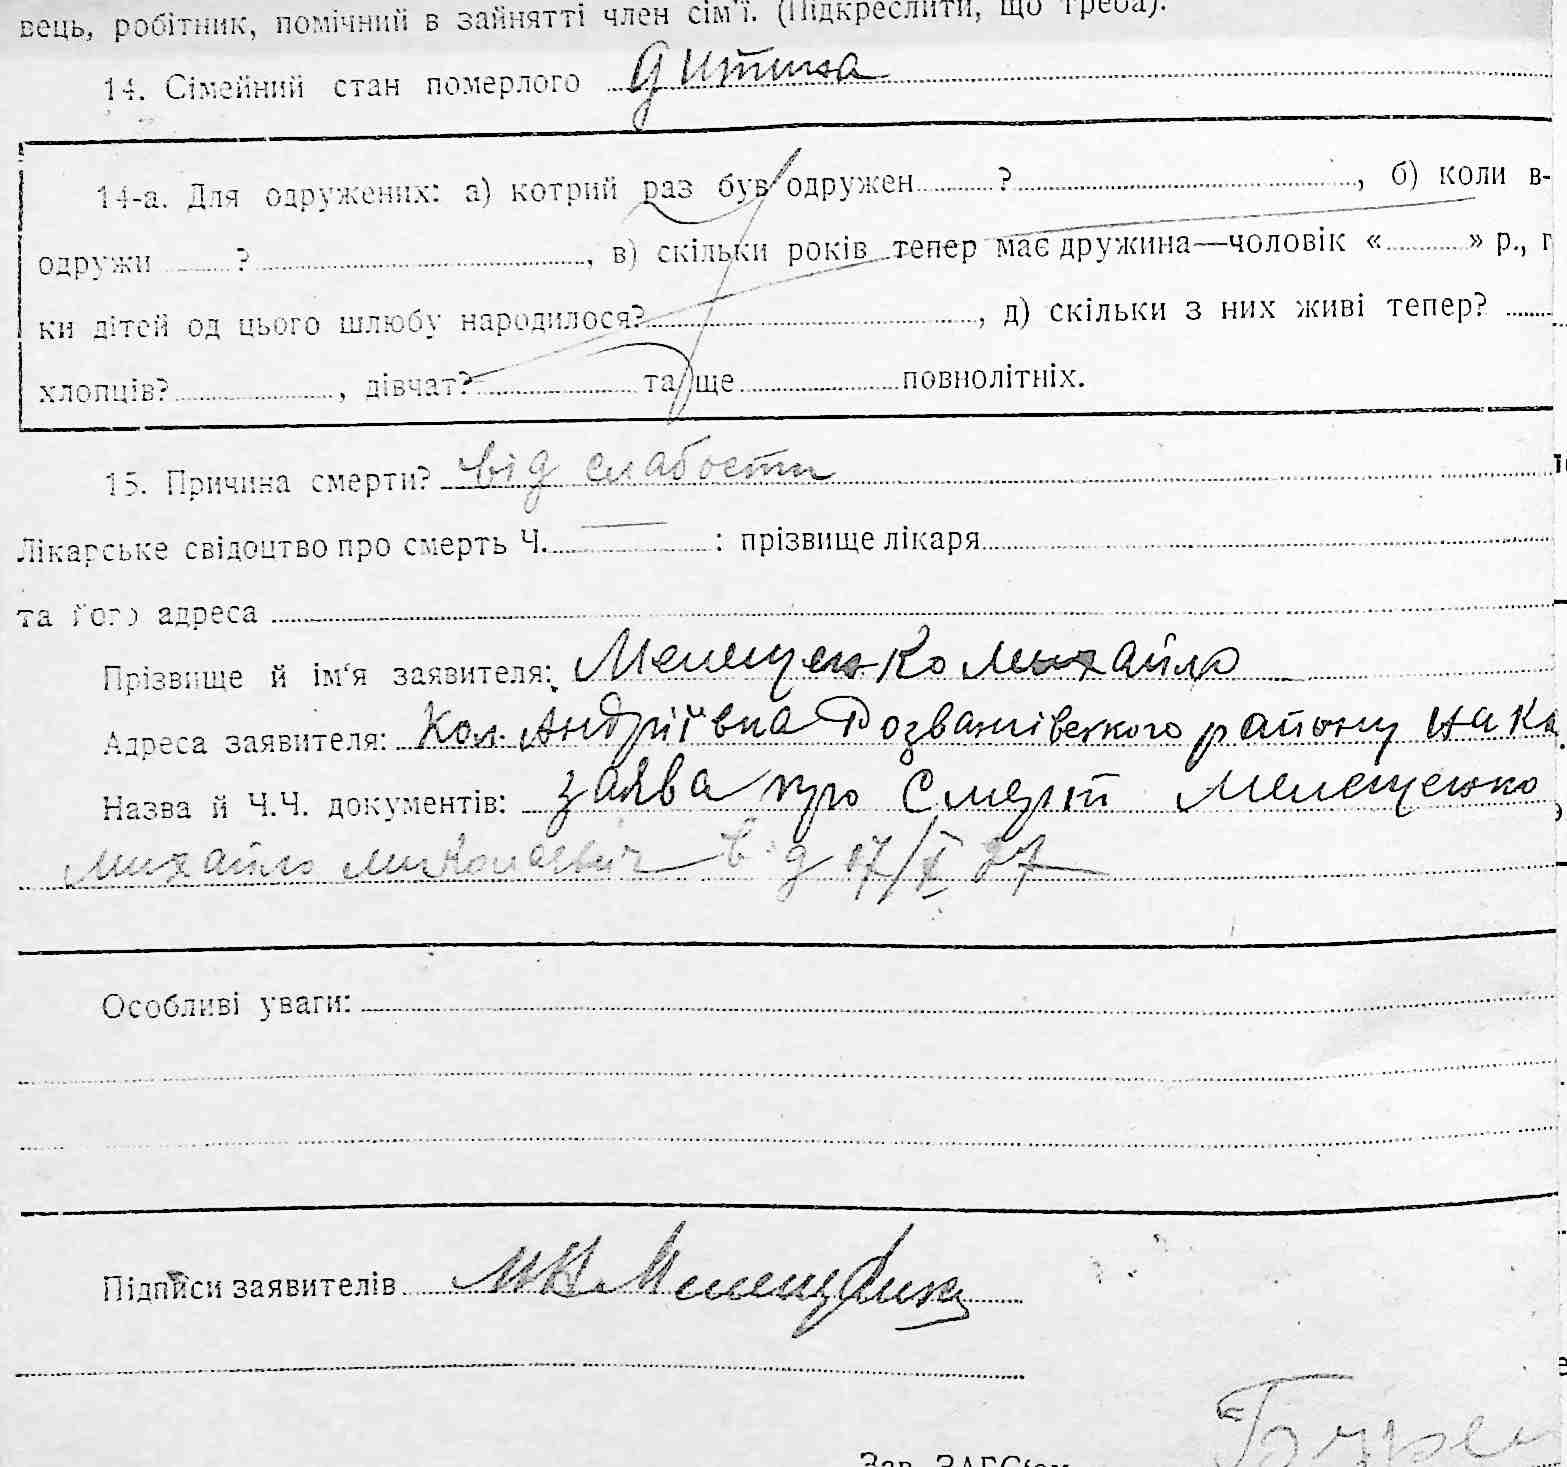 вець, робітник, помічний в зайнятті член сім'ї. (Підкреслити, що треба).
14. Сімейний стан померлого дитина
14-а. Для одружених: а) котрий раз був одружен ? , б) коли в-
одружи ? , в) скільки років тепер має дружина—чоловік « » р., г
ки дітей од цього шлюбу народилося? , д) скільки з них живі тепер?
хлопців? , дівчат? та ще повнолітніх.
15. Причина смерти? від слабости
Лікарське свідоцтво про смерть Ч. — : прізвище лікаря
та його адреса
Прізвище й ім'я заявителя: Мелещенко Михайло
Адреса заявителя: Кол. Андріївка Розважівського району на К
Назва й Ч.Ч. документів: заява про смерт Мелещенко
Михайло Миколаевич від 17/X 27
Особливі уваги:
Підписи заявителів МН
Зав. ЗАГС'ом